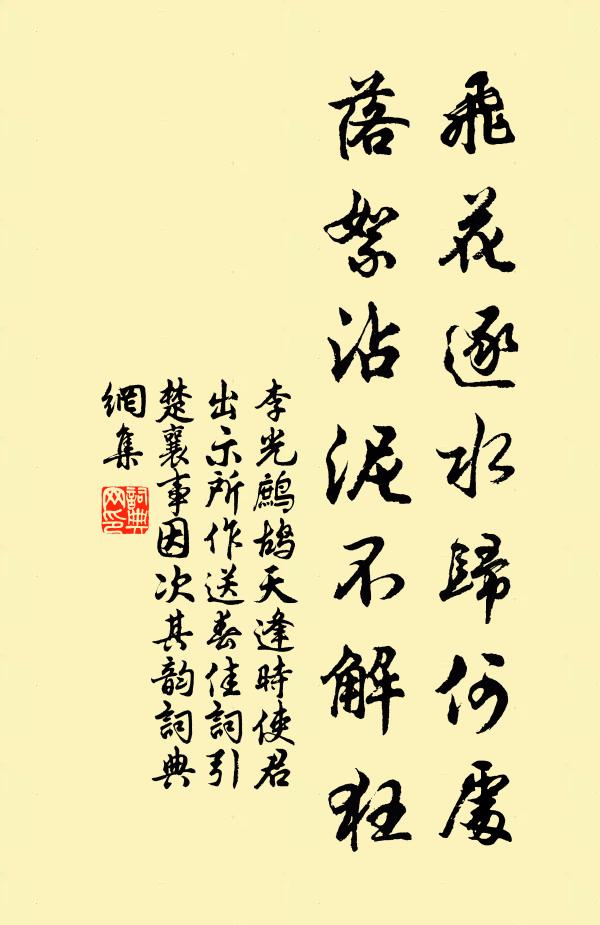 飛花逐水歸何處
落絮沾泥不解狂
李光鷓鴣天逢時使君
出示所作送春佳詞引
楚襄事因次其韵詞典
網集
詞典網印